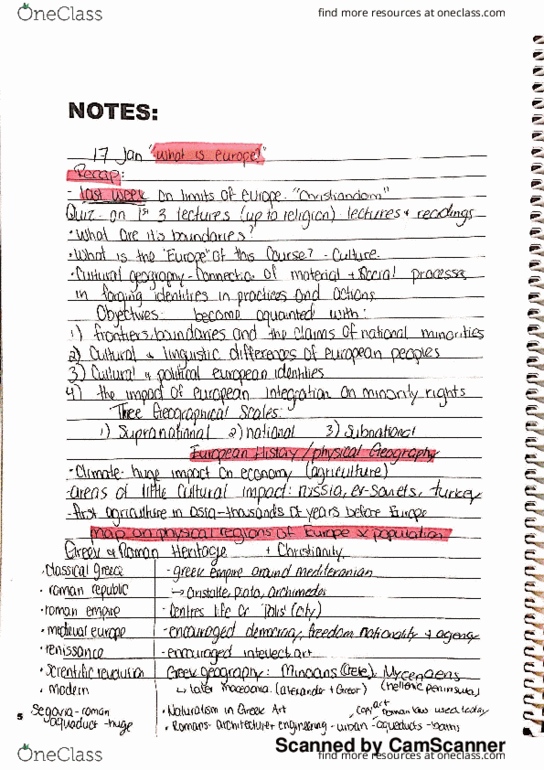 OneClass
find more resources at oneclass.com
NOTES:
17 Jan "What is europe?"
Recap:
- Last week on limits of europe. "Christiandom"
Quiz - on 1st 3 lectures (up to religion) lectures + readings
• What are it's boundaries?
• What is the "Europe" of this course? - Culture.
• Cultural geography - Connection of material + social processes
in forging identities in practices and actions
Objectives: become aquainted with:
1) frontiers, boundaries and the claims of national minorities
2) Cultural & linguistic differences of european peoples
3) Cultural & political european identities
4) the impact of european integration on minority rights
Three Geographical Scales:
1) Supranational 2) national 3) Subnational
European History / physical Geography
• Climate - huge impact on economy (agriculture)
- areas of little cultural impact: russia, ex-soviets, turkey
- first agriculture in asia - thousands of years before Europe
Map on physical regions of Europe & population
Greek & Roman Heritage + Christianity
• classical greece - greek empire around mediteranian
• roman republic → plato, archimedes
• roman empire - Centres life or "Polis" (city)
• medieval europe - encouraged democracy, freedom nationality + agency
• renissance - encouraged intellect art
• Scientific revolution Greek geography: Minoans (Crete), Mycenaens
• modern ↳ later macedonia (alexander + Great) (hellenic peninsula)
Segovia - roman aquaduct - huge
• Naturalism in Greek Art copy art roman law used today
• Romans - architecture engineering - urban - aqueducts - baths
5
OneClass
Scanned by CamScanner
find more resources at oneclass.com